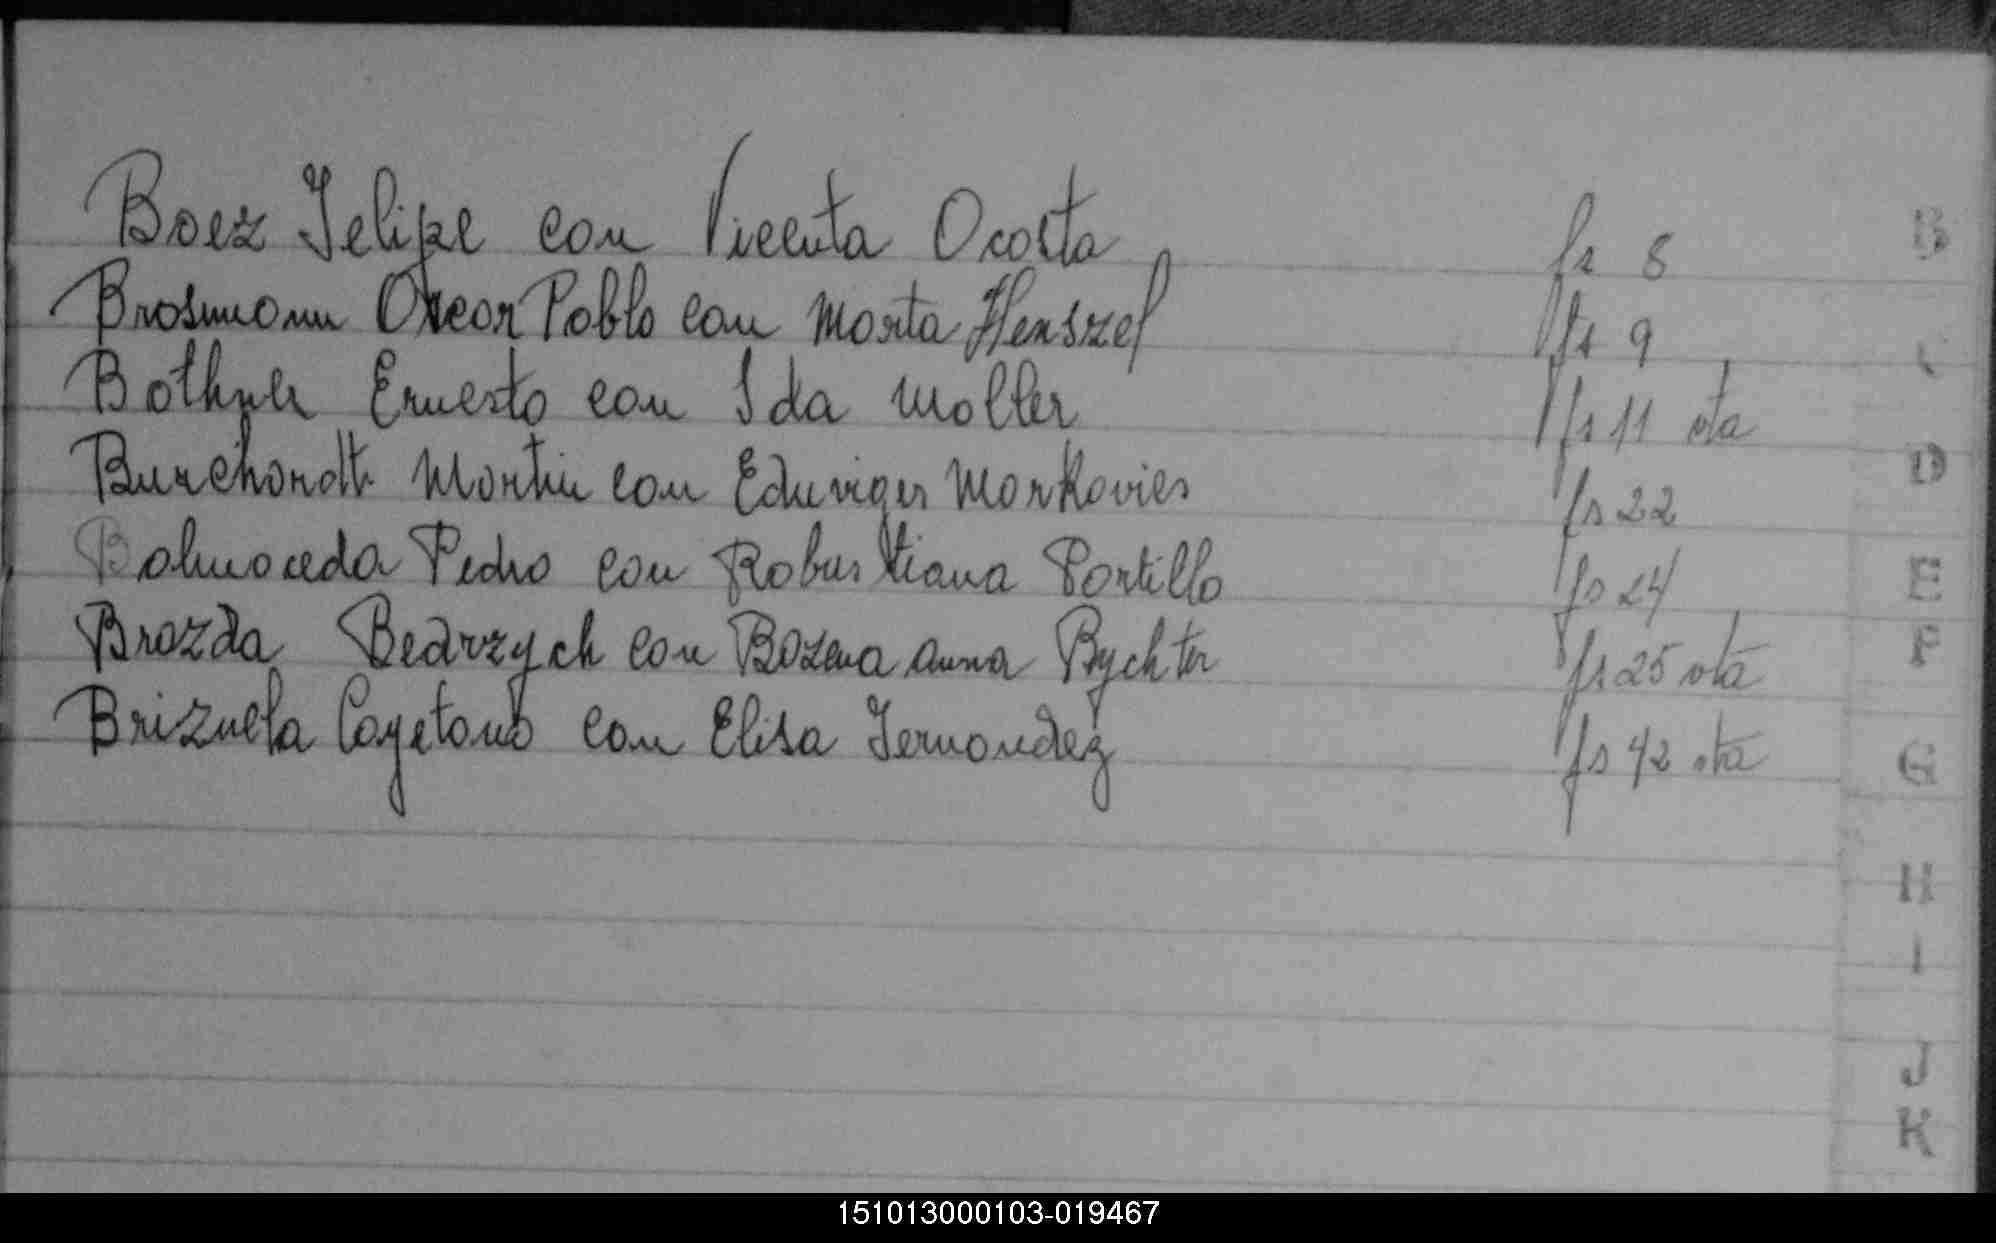 Baez Felipe con Vicenta Acosta fs 8
Brasmann Oscar Pablo con Marta Henszel fs 9
Bothner Ernesto con Ida Moller fs 11 vta
Burchardt Martin con Eduviges Markovics fs 22
Balmaceda Pedro con Robustiana Portillo fs 24
Brazda Bedrzych con Bozena Anna Bychter fs 25 vta
Brizuela Cayetano con Elisa Fernandez fs 42 vta
B
C
D
E
F
G
H
I
J
K
151013000103-019467